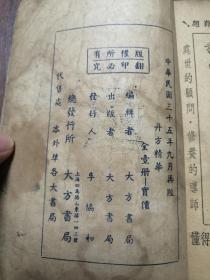 處世的顧問·修養的導師
懂得
中華民國三十五年九月再版
丹方精華
全壹冊 實價
版權所有
翻印必究
編輯者 大方書局
出版者 大方書局
發行人 李協和
總發行所 大方書局
代售處 本外埠各大書局